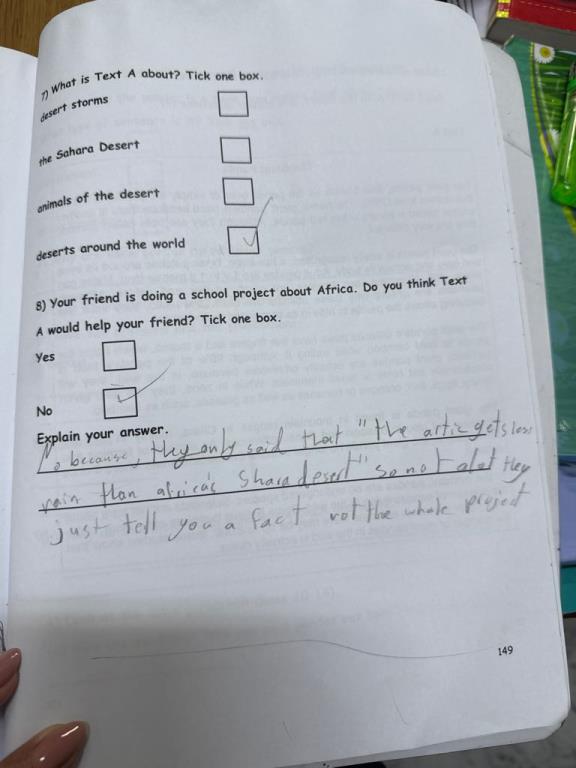 7) What is Text A about? Tick one box.
desert storms
the Sahara Desert
animals of the desert
deserts around the world
8) Your friend is doing a school project about Africa. Do you think Text
A would help your friend? Tick one box.
Yes
No
Explain your answer.
No because, they only said that "the artic gets less
rain than africa's Shara desert" so not alot they
just tell you a fact not the whole project
149